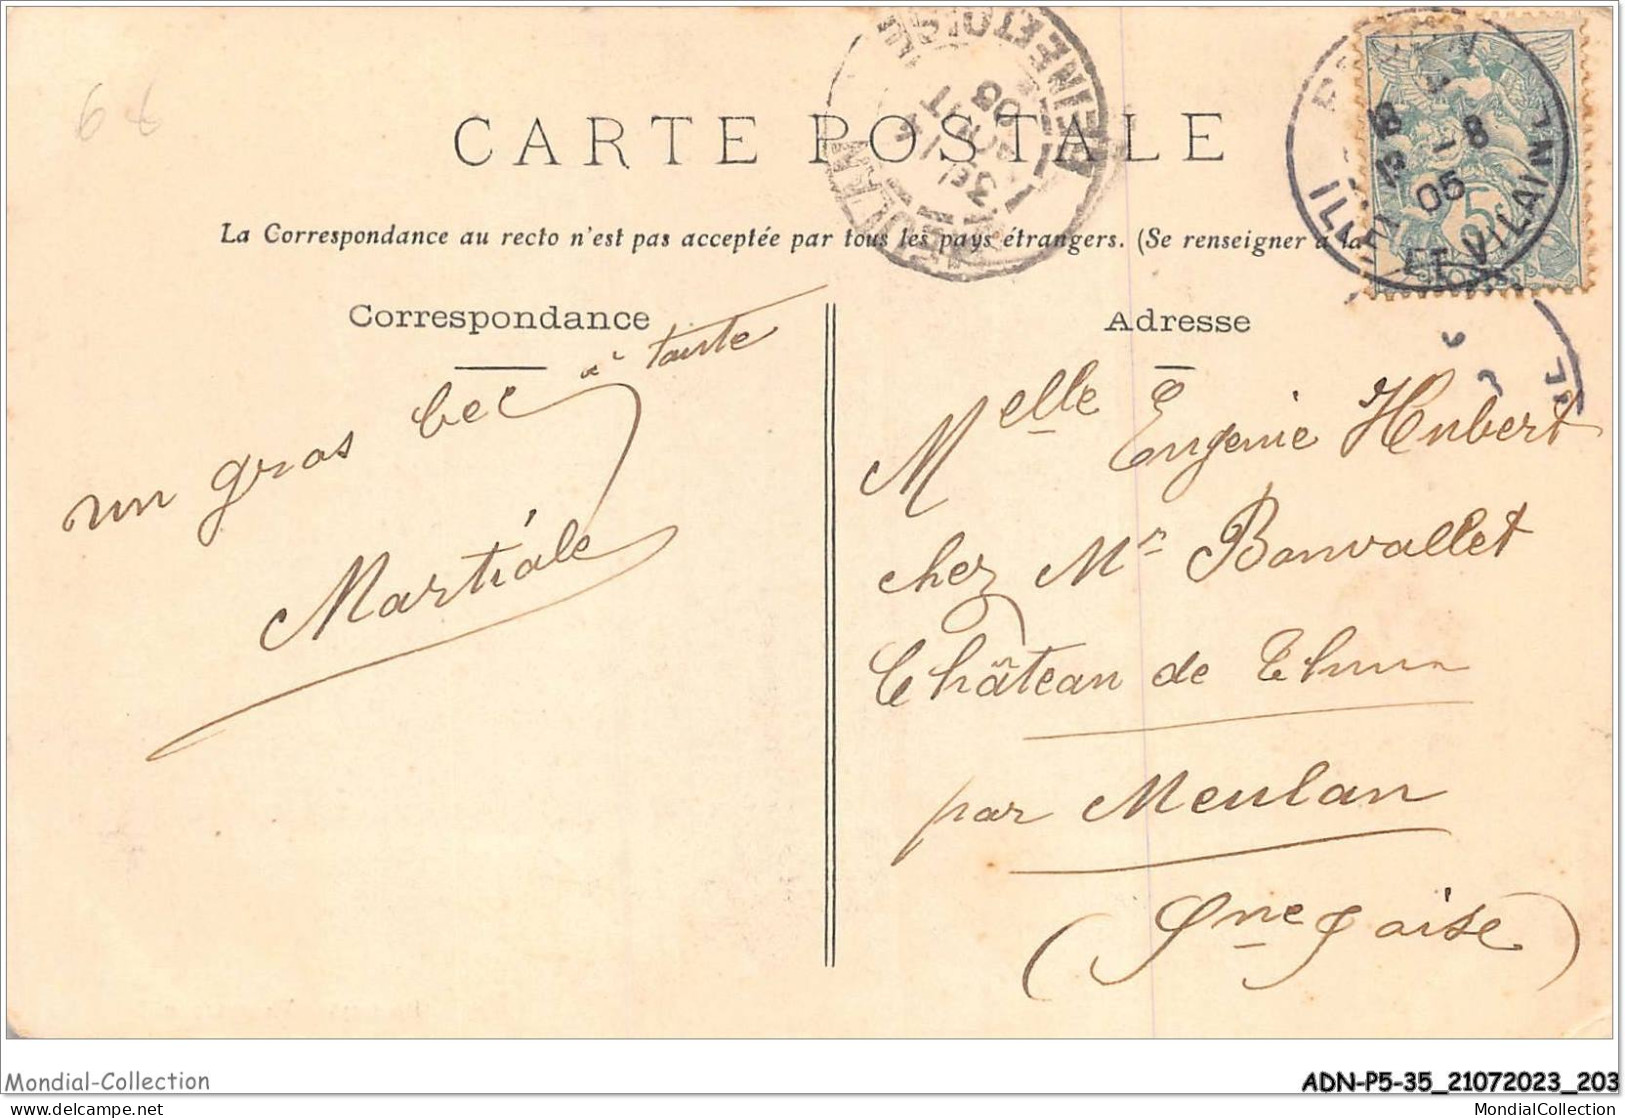 64
CARTE POSTALE
La Correspondance au recto n'est pas acceptée par tous les pays étrangers. (Se renseigner à la
Correspondance
un gros bec à tante
Martiale
Adresse
Melle Eugenie Hubert
chez Mr Bonvallet
Château de Thun
par Meulan
(Sne & Oise)
MEULAN
SEINE ET OISE
05
18 -8
05
ILLE ET VILAINE
5c
Mondial-Collection
ADN-P5-35_21072023_203
delcampe.net
MondialCollection